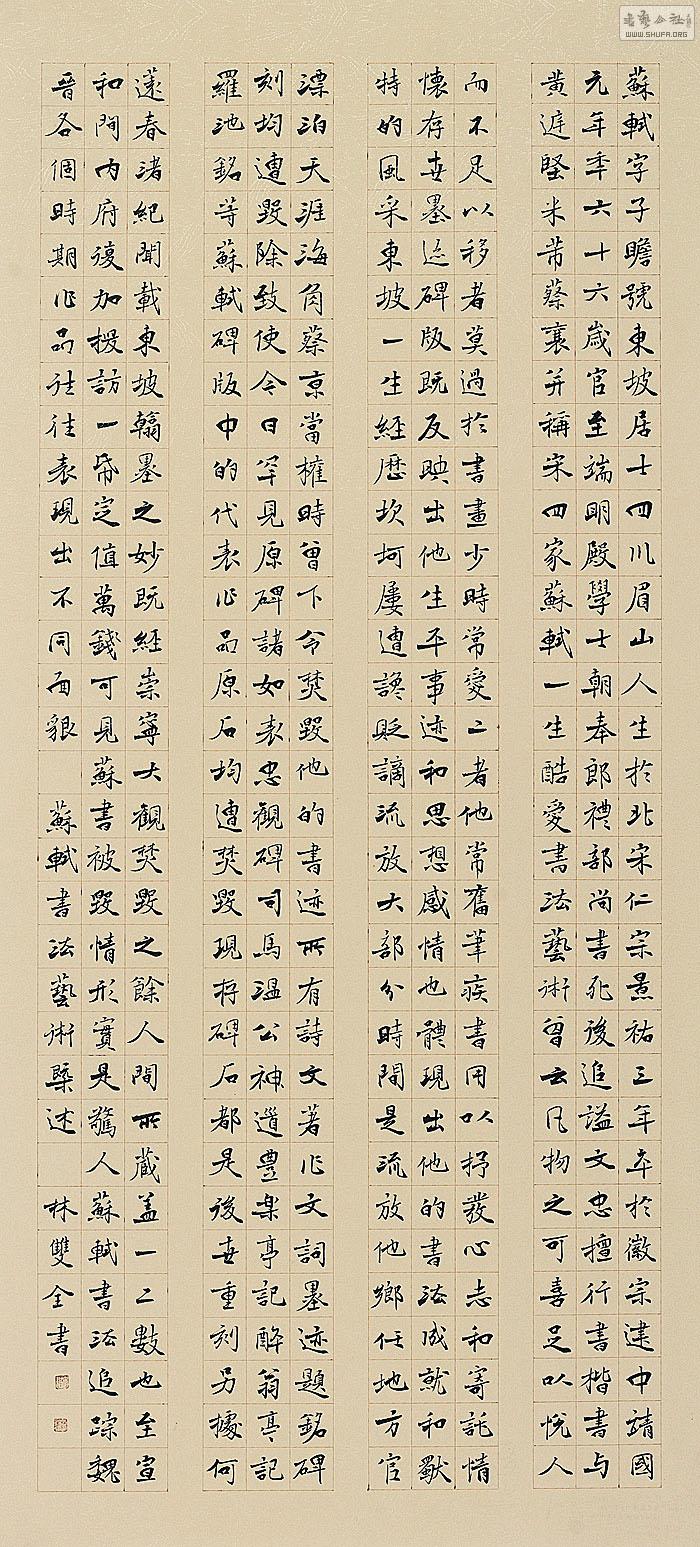 蘇軾字子瞻號東坡居士四川眉山人生於北宋仁宗景祐三年卒於徽宗建中靖國
元年年六十六歲官至端明殿學士朝奉郎禮部尚書死後追謚文忠擅行書楷書与
黃遅堅米芾蔡襄并稱宋四家蘇軾一生酷愛書法藝術曾云凡物之可喜足以悅人
而不足以移者莫過於書畫少時常愛二者他常奮筆疾書用以抒發心志和寄託情
懷存世墨迹碑版既反映出他生平事迹和思想感情也體現出他的書法成就和獻
特的風采東坡一生經歷坎坷屢遭讒貶謫流放大部分時間是流放他鄉任地方官
漂泊天涯海角蔡京當權時曾下令焚毀他的書迹所有詩文著作文詞墨迹題銘碑
刻均遭毀除致使今日罕見原碑諸如表忠觀碑司馬溫公神道豊樂亭記醉翁亭記
羅池銘等蘇軾碑版中的代表作品原石均遭焚毀現存碑石都是後世重刻另據何
薳春渚紀聞載東坡翰墨之妙既經崇寧大觀焚毀之餘人間所蔵蓋一二數也至宣
和間內府復加搜訪一帋定值萬錢可見蘇書被毀情形實是驚人蘇軾書法追踪魏
晉各個時期作品往往表現出不同面貌 蘇軾書法藝術槩述 林雙全書
WWW.SHUFA.ORG